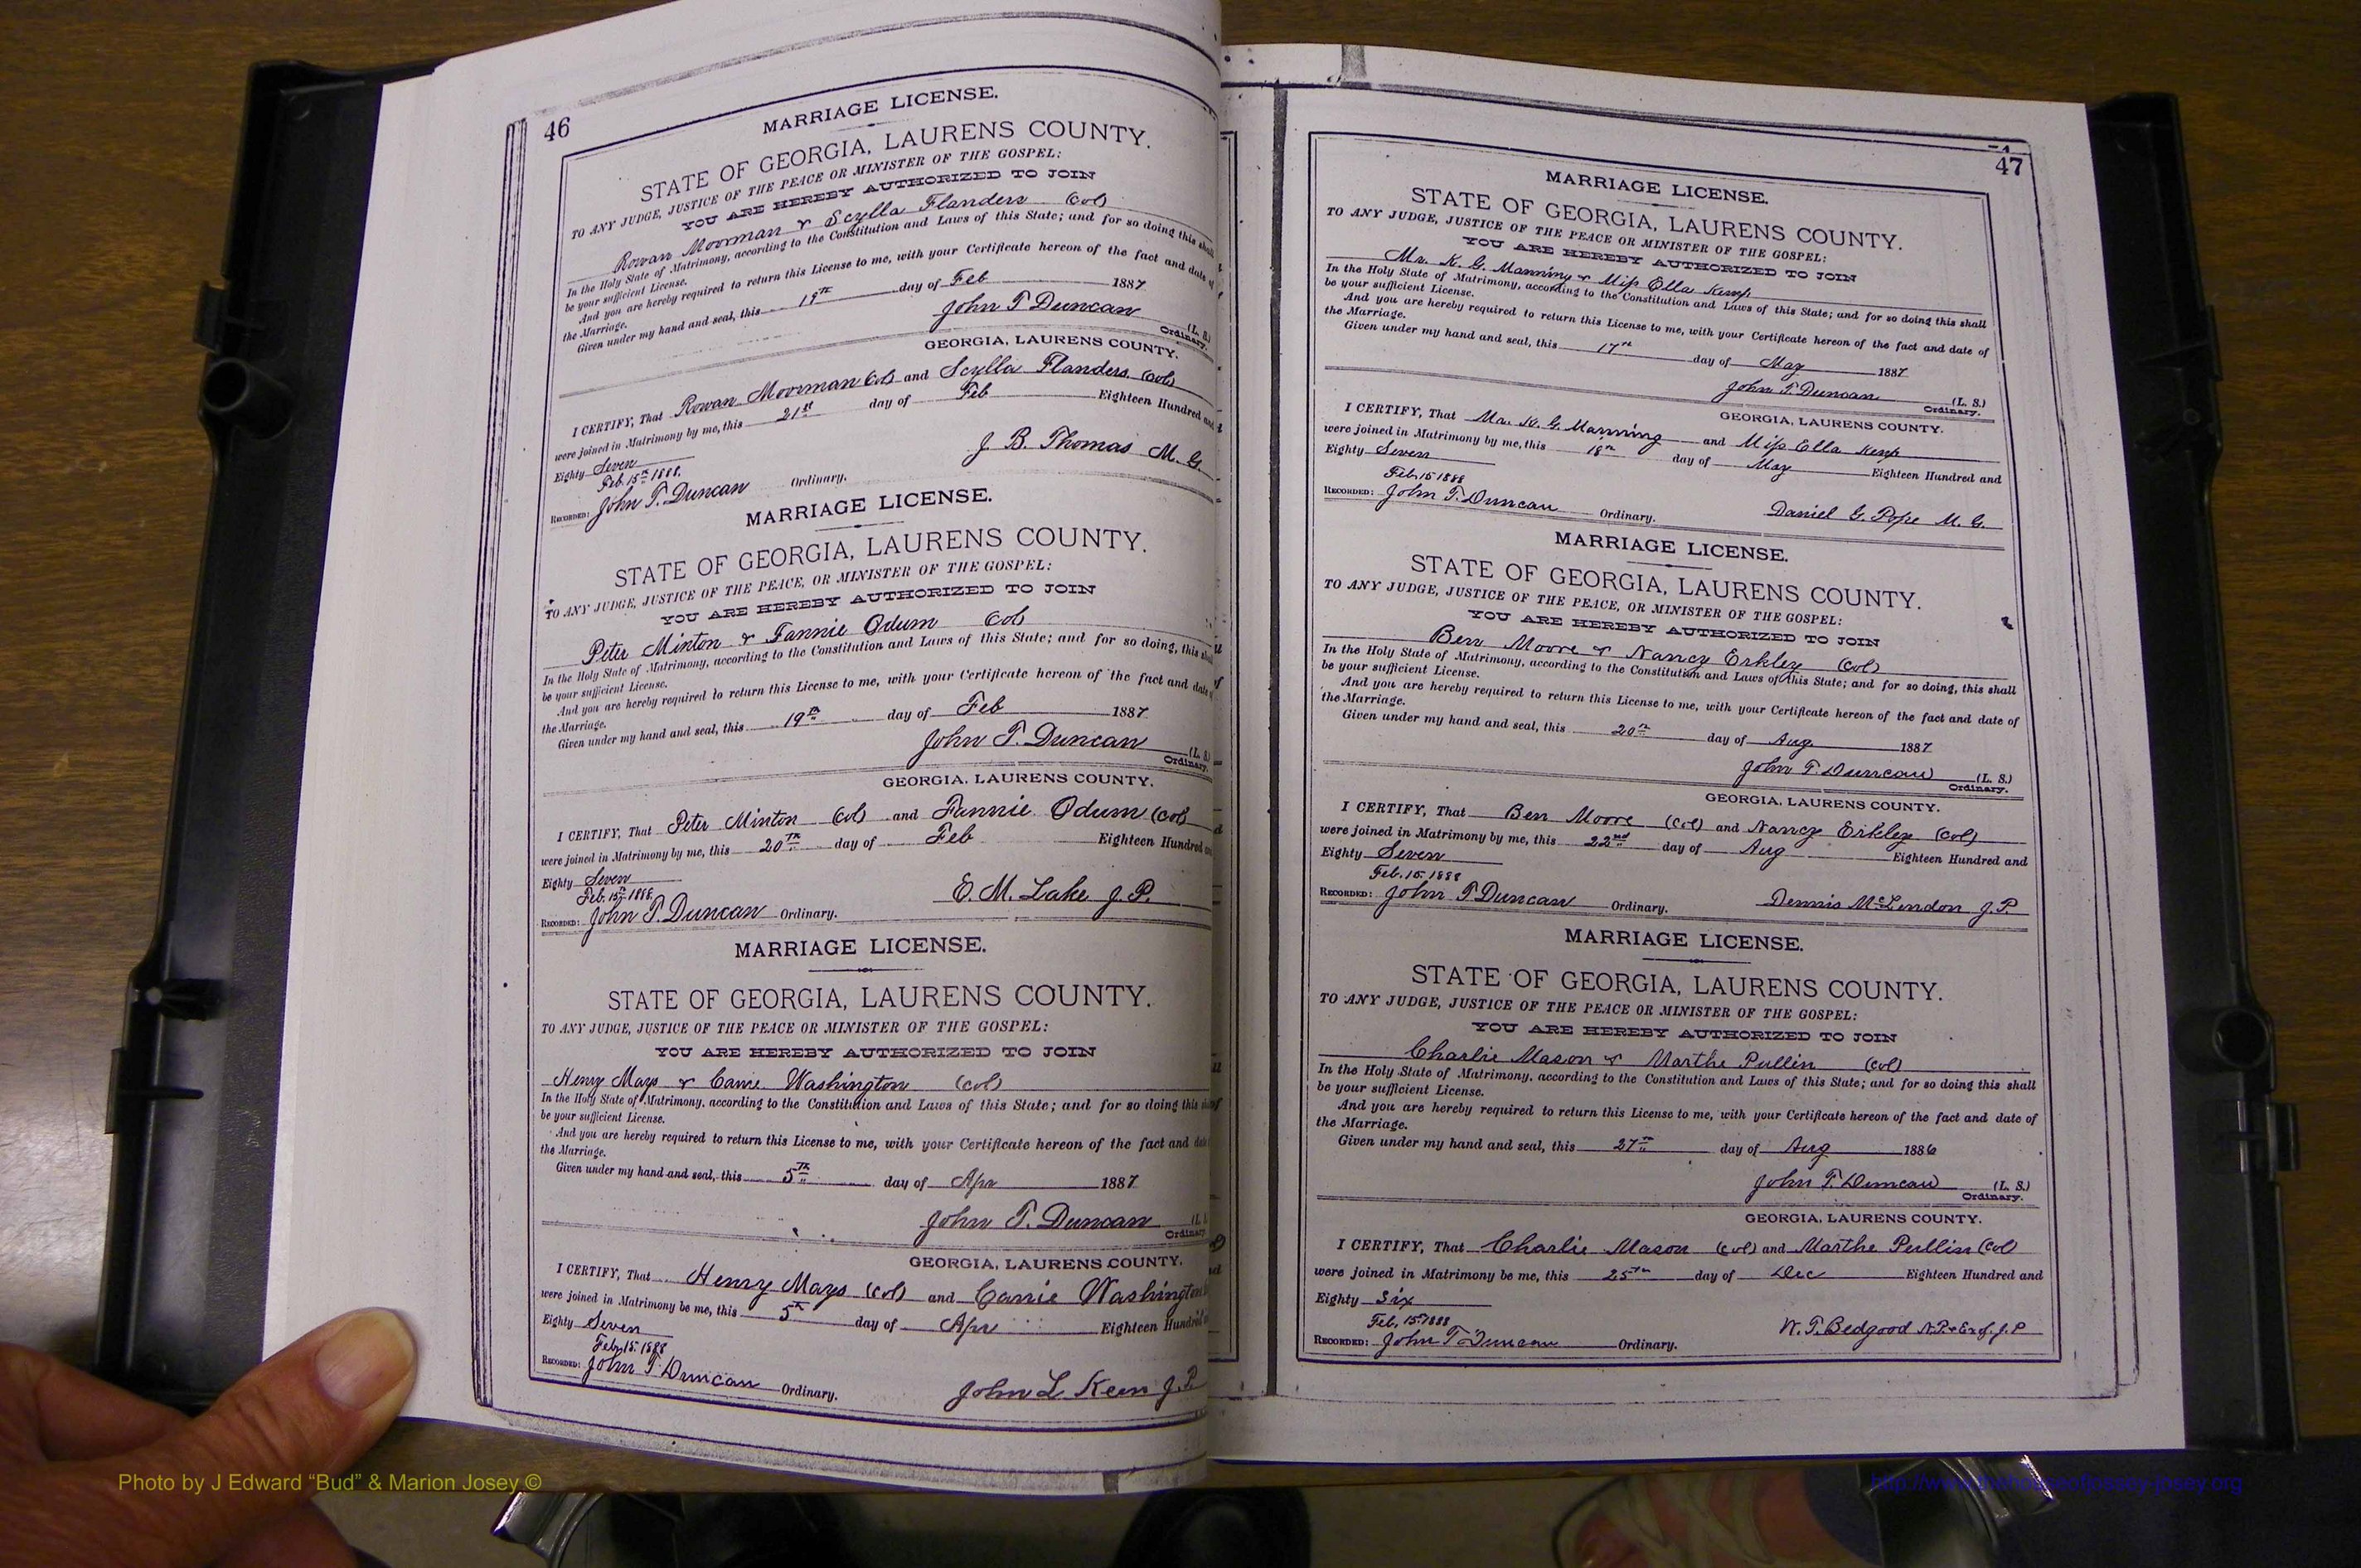 46
MARRIAGE LICENSE.
STATE OF GEORGIA, LAURENS COUNTY.
TO ANY JUDGE, JUSTICE OF THE PEACE OR MINISTER OF THE GOSPEL:
YOU ARE HEREBY AUTHORIZED TO JOIN
Rowan Moorman & Scylla Flanders (Col)
In the Holy State of Matrimony, according to the Constitution and Laws of this State; and for so doing this shall
be your sufficient License.
And you are hereby required to return this License to me, with your Certificate hereon of the fact and date of
the Marriage.
Given under my hand and seal, this 19th day of Feb 1887
John T Duncan (L. S.)
Ordinary.
GEORGIA, LAURENS COUNTY.
I CERTIFY, That Rowan Moorman Col and Scylla Flanders (Col)
were joined in Matrimony by me, this 21st day of Feb Eighteen Hundred and
Eighty Seven
J. B. Thomas M. G.
Feb. 15th 1888.
RECORDED: John T. Duncan Ordinary.
MARRIAGE LICENSE.
STATE OF GEORGIA, LAURENS COUNTY.
TO ANY JUDGE, JUSTICE OF THE PEACE, OR MINISTER OF THE GOSPEL:
YOU ARE HEREBY AUTHORIZED TO JOIN
Peter Minton & Fannie Odum Col
In the Holy State of Matrimony, according to the Constitution and Laws of this State; and for so doing, this shall
be your sufficient License.
And you are hereby required to return this License to me, with your Certificate hereon of the fact and date of
the Marriage.
Given under my hand and seal, this 19th day of Feb 1887
John T. Duncan (L. S.)
Ordinary.
GEORGIA, LAURENS COUNTY.
I CERTIFY, That Peter Minton Col and Fannie Odum (Col
were joined in Matrimony by me, this 20th day of Feb Eighteen Hundred
Eighty Seven
E. M. Lake J. P.
Feb. 15th 1888.
RECORDED: John T. Duncan Ordinary.
MARRIAGE LICENSE.
STATE OF GEORGIA, LAURENS COUNTY.
TO ANY JUDGE, JUSTICE OF THE PEACE OR MINISTER OF THE GOSPEL:
YOU ARE HEREBY AUTHORIZED TO JOIN
Henry Mays & Carrie Washington (Col)
In the Holy State of Matrimony, according to the Constitution and Laws of this State; and for so doing this
be your sufficient License.
And you are hereby required to return this License to me, with your Certificate hereon of the fact and date
the Marriage.
Given under my hand and seal, this 5th day of Apr 1887
John T. Duncan
Ordinary
GEORGIA, LAURENS COUNTY.
I CERTIFY, That Henry Mays (Col) and Carrie Washington
were joined in Matrimony be me, this 5th day of Apr Eighteen Hundred
Eighty Seven
Feb. 15. 1888
RECORDED: John T Duncan Ordinary.
John L Keen J. P.
47
MARRIAGE LICENSE.
STATE OF GEORGIA, LAURENS COUNTY.
TO ANY JUDGE, JUSTICE OF THE PEACE OR MINISTER OF THE GOSPEL:
YOU ARE HEREBY AUTHORIZED TO JOIN
Mr. K. G. Manning & Miss Ella Kemp
In the Holy State of Matrimony, according to the Constitution and Laws of this State; and for so doing this shall
be your sufficient License.
And you are hereby required to return this License to me, with your Certificate hereon of the fact and date of
the Marriage.
Given under my hand and seal, this 17th day of May 1887
John T. Duncan (L. S.)
Ordinary.
GEORGIA, LAURENS COUNTY.
I CERTIFY, That Mr. K. G. Manning and Miss Ella Kemp
were joined in Matrimony by me, this 18th day of May Eighteen Hundred and
Eighty Seven
Feb. 15 1888
RECORDED: John T. Duncan Ordinary.
Daniel G. Pope M. G.
MARRIAGE LICENSE.
STATE OF GEORGIA, LAURENS COUNTY.
TO ANY JUDGE, JUSTICE OF THE PEACE, OR MINISTER OF THE GOSPEL:
YOU ARE HEREBY AUTHORIZED TO JOIN
Ben Moore & Nancy Erkley (Col)
In the Holy State of Matrimony, according to the Constitution and Laws of this State; and for so doing, this shall
be your sufficient License.
And you are hereby required to return this License to me, with your Certificate hereon of the fact and date of
the Marriage.
Given under my hand and seal, this 20th day of Aug 1887
John T. Duncan (L. S.)
Ordinary.
GEORGIA, LAURENS COUNTY.
I CERTIFY, That Ben Moore (Col) and Nancy Erkley (Col)
were joined in Matrimony by me, this 22nd day of Aug Eighteen Hundred and
Eighty Seven
Feb. 15. 1888
RECORDED: John T Duncan Ordinary.
Dennis McLendon J. P.
MARRIAGE LICENSE.
STATE OF GEORGIA, LAURENS COUNTY.
TO ANY JUDGE, JUSTICE OF THE PEACE OR MINISTER OF THE GOSPEL:
YOU ARE HEREBY AUTHORIZED TO JOIN
Charlie Mason & Marthe Pullin (Col)
In the Holy State of Matrimony, according to the Constitution and Laws of this State; and for so doing this shall
be your sufficient License.
And you are hereby required to return this License to me, with your Certificate hereon of the fact and date of
the Marriage.
Given under my hand and seal, this 27th day of Aug 1886
John T. Duncan (L. S.)
Ordinary.
GEORGIA, LAURENS COUNTY.
I CERTIFY, That Charlie Mason (Col) and Marthe Pullin (Col)
were joined in Matrimony be me, this 25th day of Dec Eighteen Hundred and
Eighty Six
Feb, 15. 1888
RECORDED: John T Duncan Ordinary.
W. T. Bedgood N.P. & Exof. J. P
Photo by J Edward “Bud” & Marion Josey ©